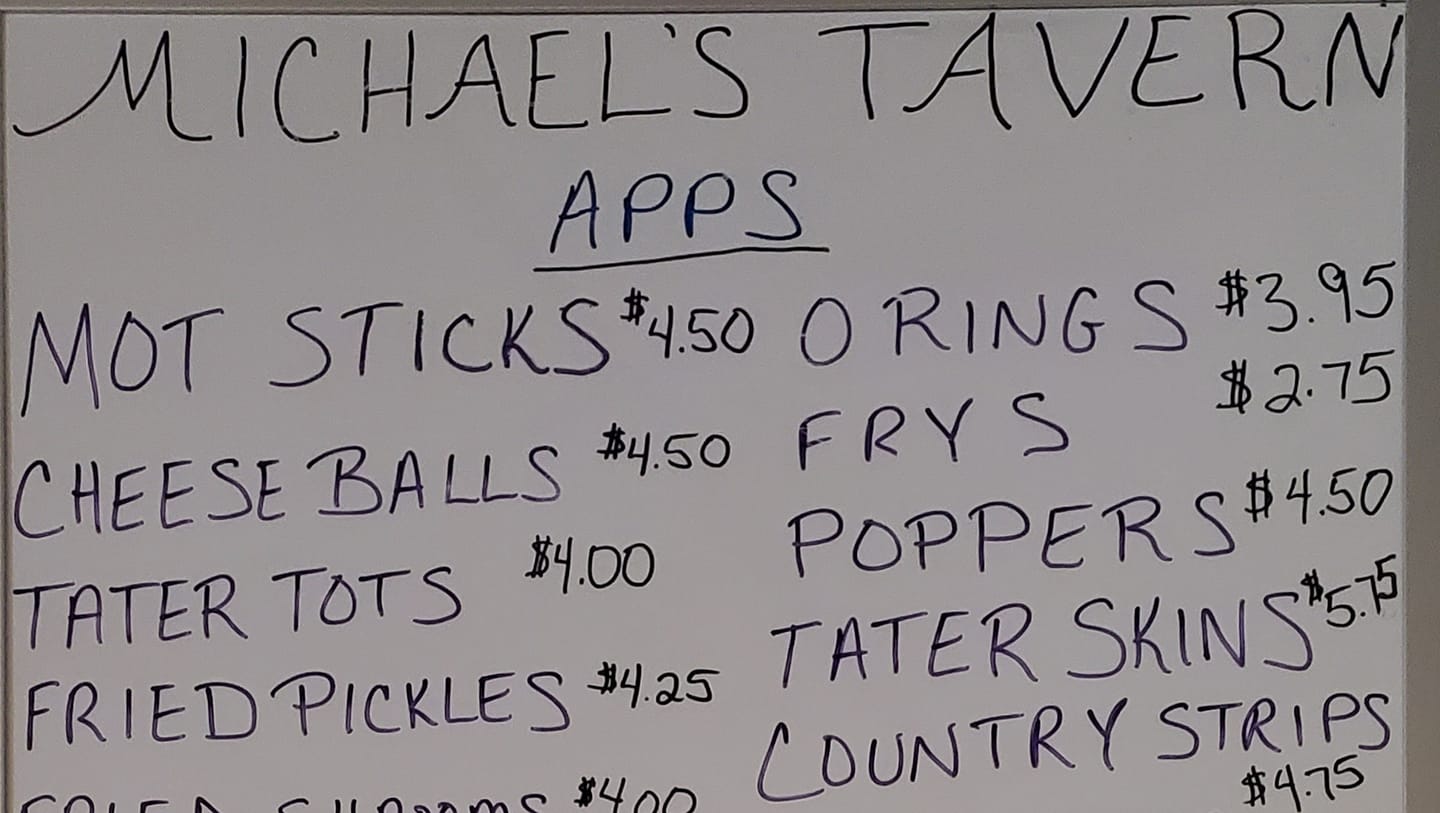 MICHAEL'S TAVERN
APPS
MOT STICKS $4.50
CHEESE BALLS $4.50
TATER TOTS $4.00
FRIED PICKLES $4.25
FRIED SHROOMS $4.00
O RINGS $3.95
FRYS $2.75
POPPERS $4.50
TATER SKINS $5.75
COUNTRY STRIPS
$4.75